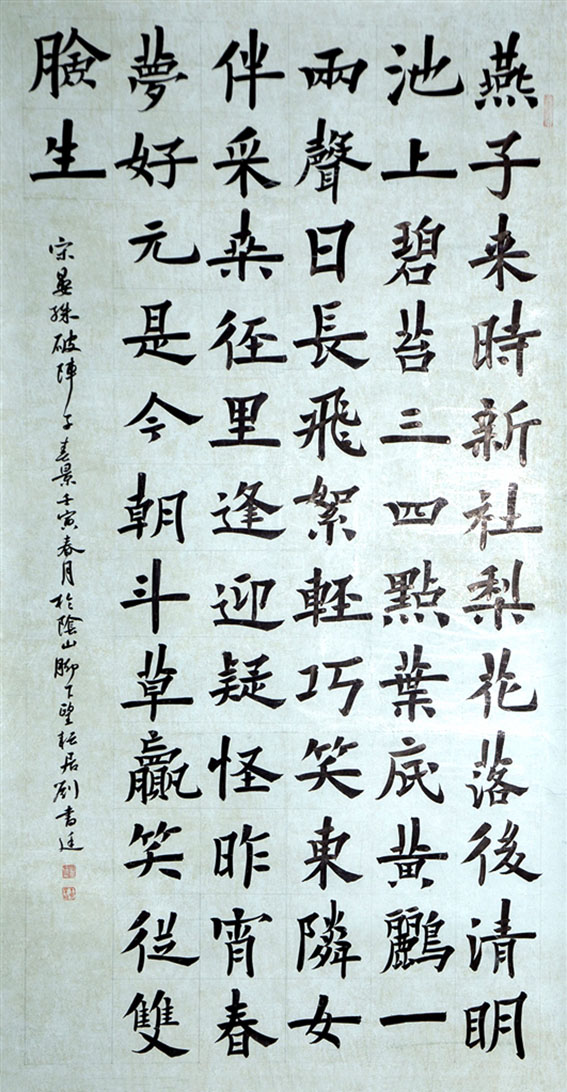 燕子来時新社梨花落後清明
池上碧苔三四點葉底黄鸝一
兩聲日長飛絮輕巧笑東隣女
伴采桒径里逢迎疑怪昨宵春
夢好元是今朝斗草贏笑従雙
臉生
宋晏殊破陣子春景壬寅春月於陰山脚下望居刘書廷